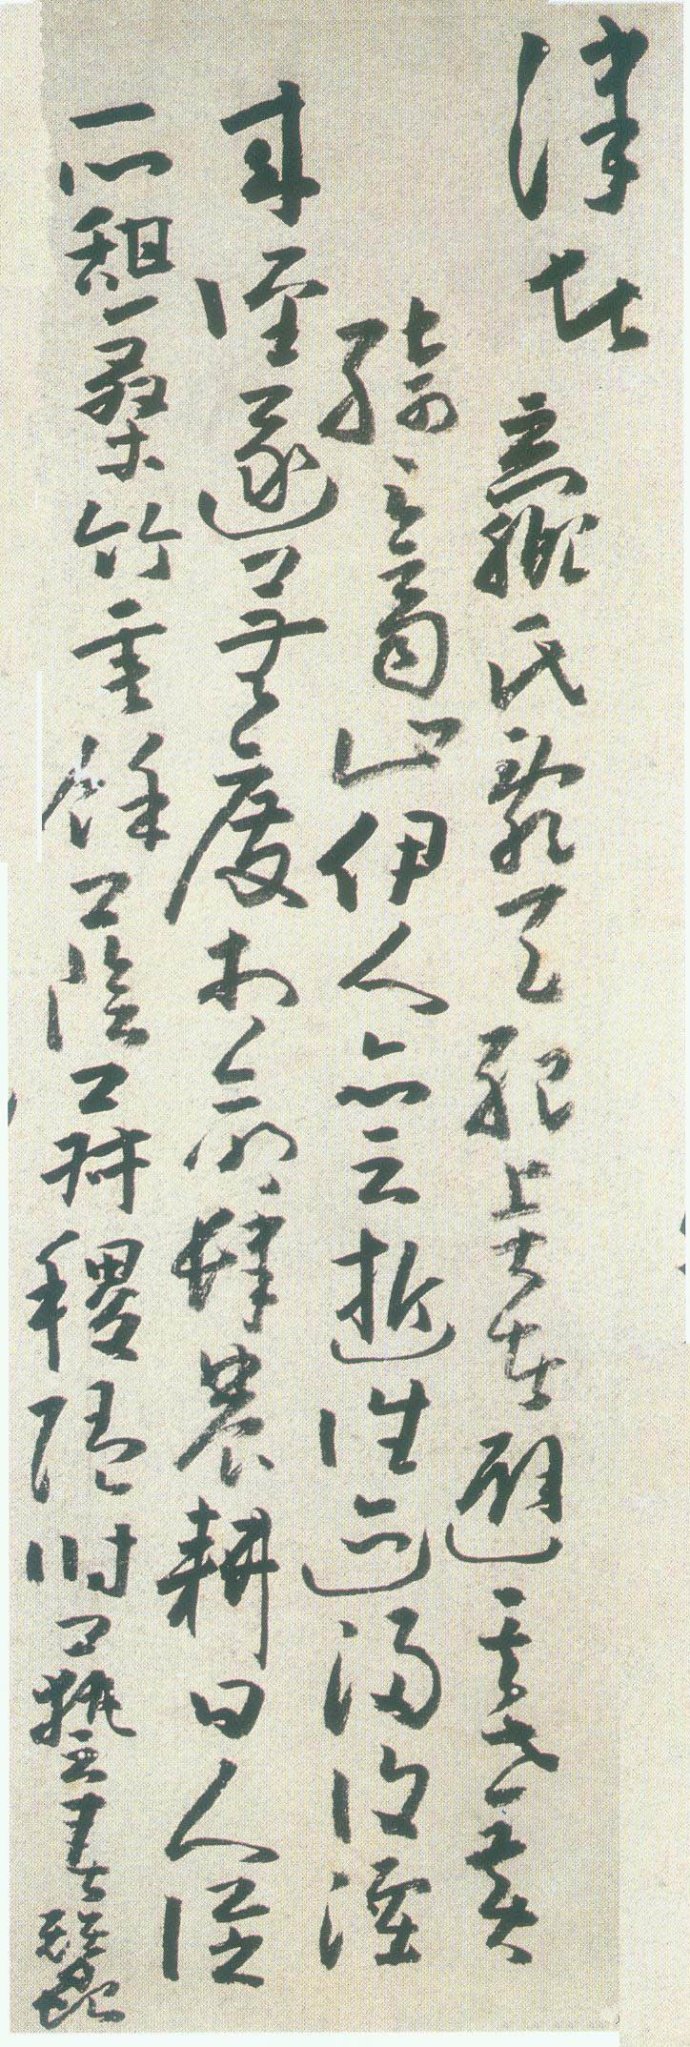 津者
嬴氏亂天紀賢者避其世黃
綺之商山伊人亦云逝往迹浸復湮
來徑遂蕪廢相命肆農耕日入從
所憩桑竹垂餘蔭菽稷隨時藝春蠶